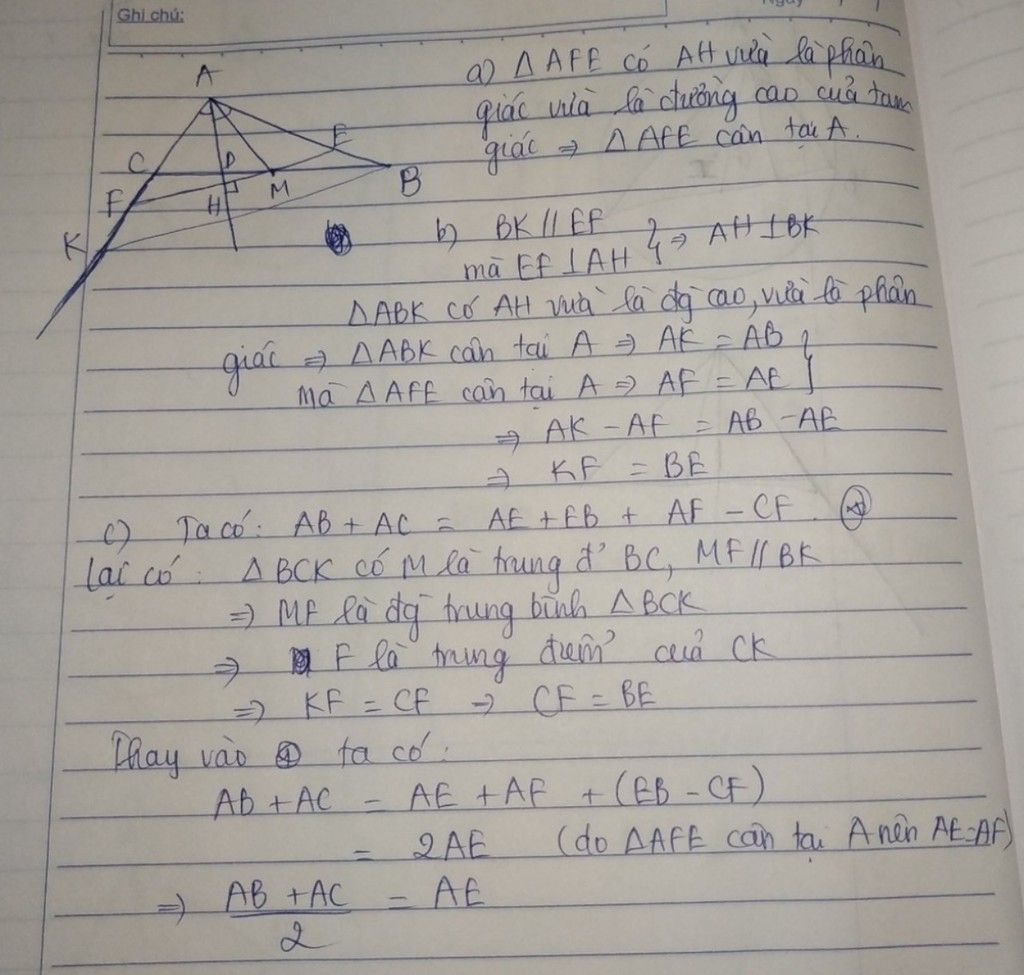 Ghi chú:
Ngày
A
E
C
D
B
F
M
H
K
a) Δ AFE có AH vừa là phân
giác vừa là đường cao của tam
giác ⇒ Δ AFE cân tại A.
b) BK // EF
mà EF ⊥ AH } ⇒ AH ⊥ BK
ΔABK có AH vừa là đg cao, vừa là phân
giác ⇒ ΔABK cân tại A ⇒ AK = AB
mà Δ AFE cân tại A ⇒ AF = AE }
⇒ AK - AF = AB - AE
⇒ KF = BE
c) Ta có: AB + AC = AE + EB + AF - CF. (*)
Lại có: Δ BCK có M là trung đ' BC, MF // BK
⇒ MF là đg trung bình ΔBCK
⇒ F là trung điểm của CK
⇒ KF = CF ⇒ CF = BE
Thay vào (*) ta có:
AB + AC = AE + AF + (EB - CF)
= 2AE (do ΔAFE cân tại A nên AE = AF)
⇒ AB + AC / 2 = AE